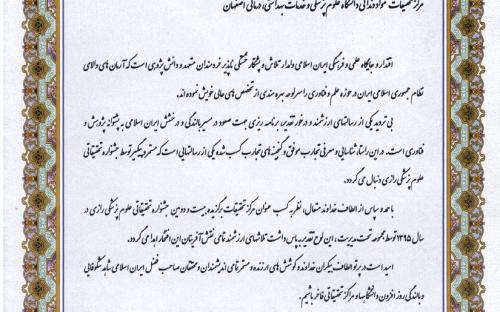 مرکز تحقیقات مواد دندانی دانشگاه علوم پزشکی و خدمات بهداشتی، درمانی اصفهان
اقتدار و جایگاه علمی و فرهنگی ایران اسلامی وامدار تلاش و پشتکار خستگی ناپذیر خردمندان متعهد و دانش پژوهی است که آرمان های والای
نظام جمهوری اسلامی ایران در حوزه علم و فناوری را سرلوحه بهره مندی از تخصص های عالی خویش نموده اند.
بی تردید یکی از رسالتهای ارزشمند و در خور تقدیر، برنامه ریزی جهت صعود در مسیر بالندگی و درخشش ایران اسلامی به پشتوانه پژوهش و
فناوری است. در این راستا، شناسایی و معرفی تجارب موفق و گنجینه های تجارب کسب شده یکی از رسالتهایی است که مستمر و پیگیر توسط جشنواره تحقیقاتی
علوم پزشکی رازی دنبال می گردد.
با حمد و سپاس از الطاف خداوند متعال، نظر به کسب عنوان مرکز تحقیقات برگزیده بیست و دومین جشنواره تحقیقاتی علوم پزشکی رازی در
سال ۱۳۹۵ توسط مجموعه تحت مدیریت، این لوح تقدیر به پاس داشت تلاشهای ارزشمند تمامی نقش آفرینان این افتخار اهدا می گردد.
امید است در پرتو الطاف بیکران خداوند و کوشش های ارزنده و مستمر تمامی اندیشمندان و محققان صاحب فضل ایران اسلامی شاهد شکوفایی
و بالندگی روز افزون دانشگاهها و مراکز تحقیقاتی فاخر باشیم.